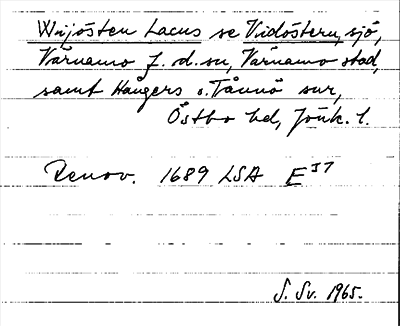 Wijösten Lacus se Vidöstern, sjö,
Värnamo f. d. sn, Värnamo stad,
samt Hångers o. Tånnö snr,
Östbo hd, Jönk. l.
Renov. 1689 LSA E57
S. Sv. 1965.